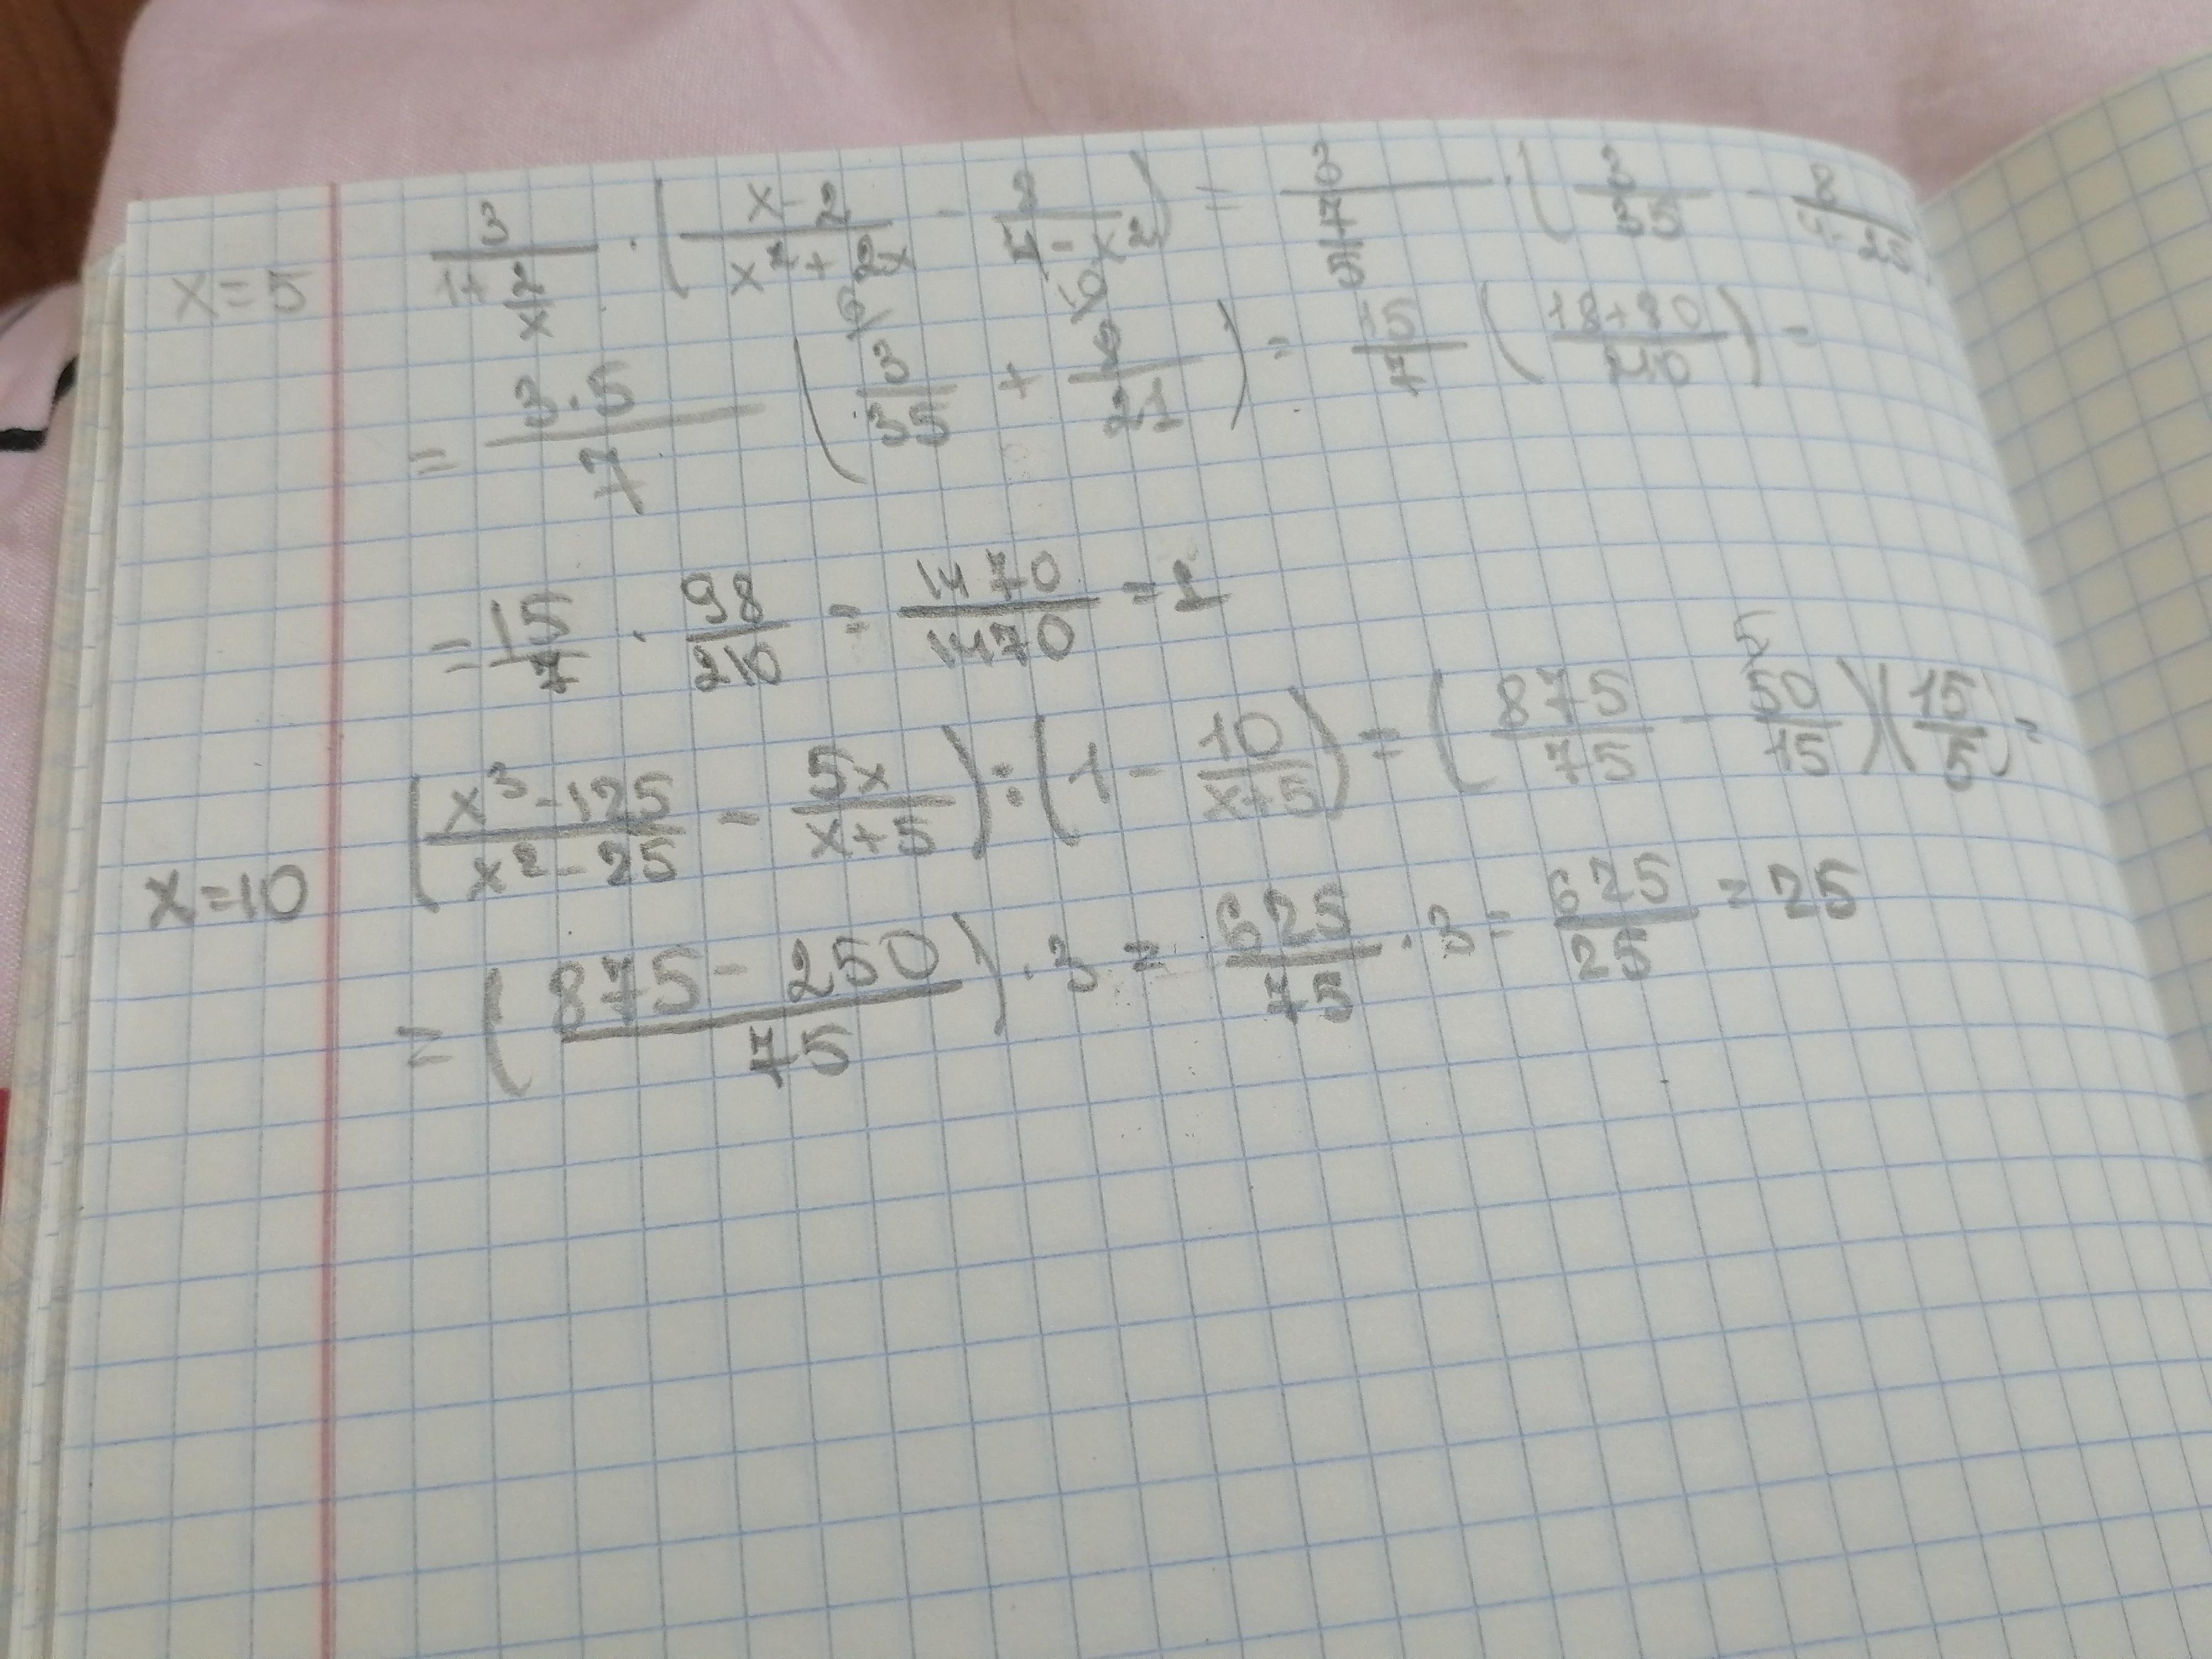 x=5   3/(1+2/x) · ((x-2)/(x²+2x) - 8/(4-x²)) = 3/(7/5) · (3/35 - 8/(4-25))
= 3·5/7 (3/35 + 8/21) = 15/7 (18+80/210) =
= 15/7 · 98/210 = 1470/1470 = 1
x=10   ((x³-125)/(x²-25) - 5x/(x+5)) : (1 - 10/(x+5)) = (875/75 - 50/15)(15/5) =
= ((875-250)/75) · 3 = 625/75 · 3 = 625/25 = 25